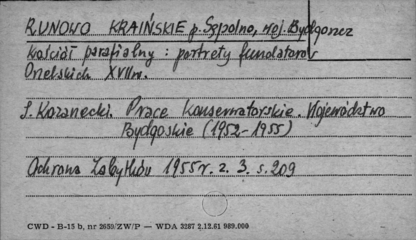 RUNOWO KRAIŃSKIE p. Sępolno, woj. Bydgoszcz
kościół parafialny : portrety fundatorów
Orzelskich XVIIw.
S. Kozanecki. Prace Konserwatorskie. Województwo
Bydgoskie (1952-1955)
Ochrona Zabytków 1955 r. z. 3. s. 209
CWD - B-15 b, nr 2659/ZW/P — WDA 3287 2.12.61 989.000